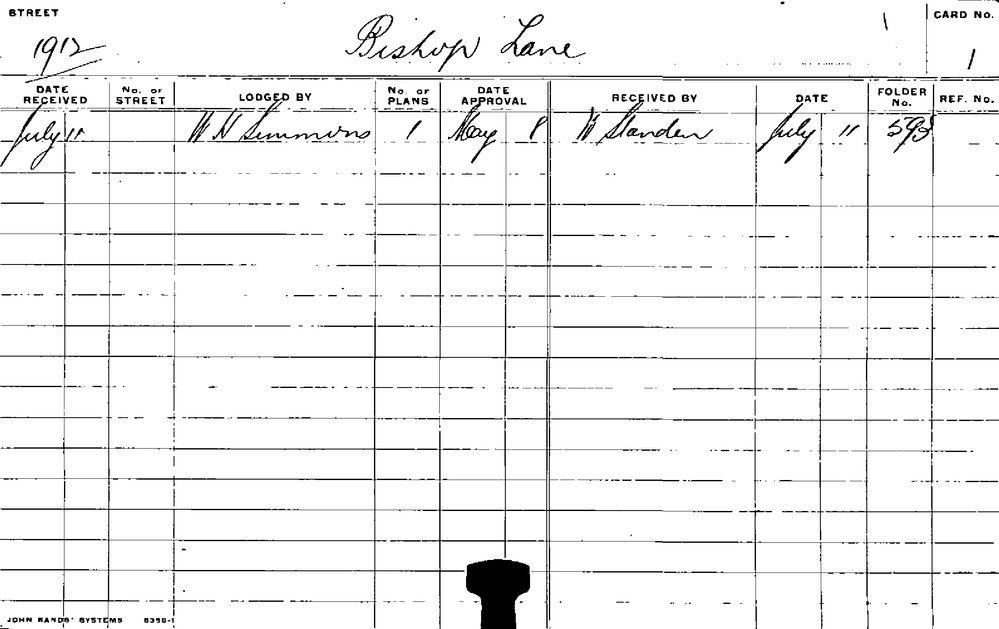 STREET 1912 Bishop Lane 1 CARD No. 1
DATE RECEIVED No. OF STREET LODGED BY No. OF PLANS DATE APPROVAL RECEIVED BY DATE FOLDER No. REF. No.
July 11 W H Simmons 1 May 8 W Standen July 11 593
JOHN SANDS' SYSTEMS